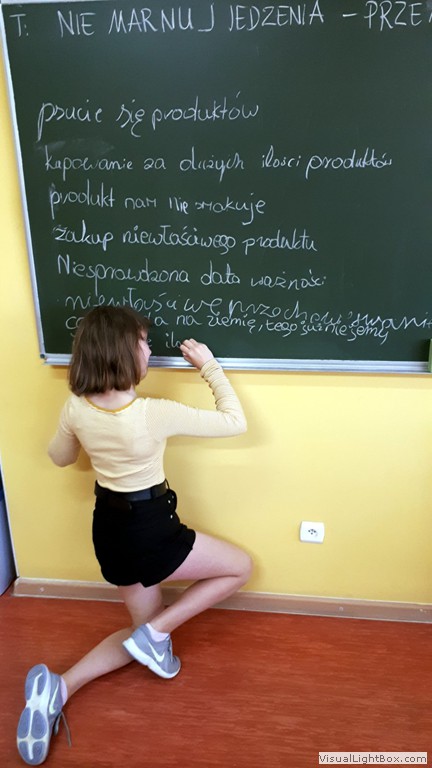 T: NIE MARNUJ JEDZENIA – PRZE
psucie się produktów
kupowanie za dużych ilości produktów
produkt nam nie smakuje
zakup niewłaściwego produktu
Niesprawdzona data ważności
niewłaściwe przechowywani
na ziemię, tego nie zjemy
VisualLightBox.com